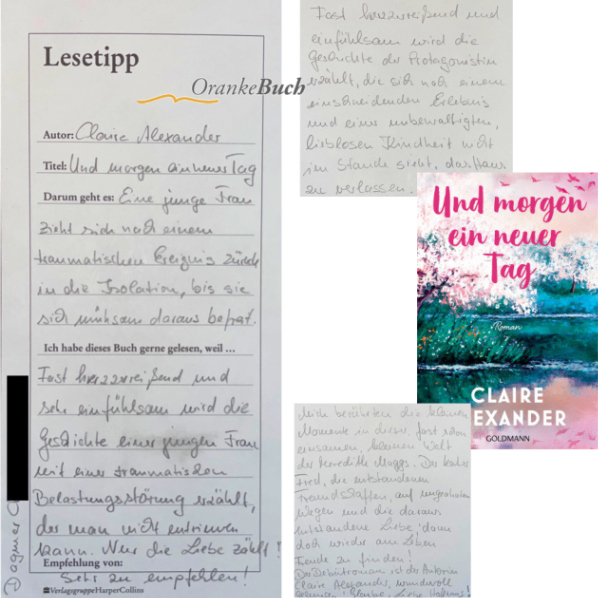 Lesetipp
OrankeBuch
Autor: Claire Alexander
Titel: Und morgen ein neuer Tag
Darum geht es: Eine junge Frau
zieht sich nach einem
traumatischen Ereignis zurück
in die Isolation, bis sie
sich mühsam daraus befreit.
Ich habe dieses Buch gerne gelesen, weil ...
Fast herzzerreißend und
sehr einfühlsam wird die
Geschichte einer jungen Frau
mit einer traumatischen
Belastungsstörung erzählt,
der man nicht entrinnen
kann. Nur die Liebe zählt!
Empfehlung von:
Sehr zu empfehlen!
VerlagsgruppeHarperCollins
Dagmar
Fast herzzerreißend und
einfühlsam wird die
Geschichte der Protagonistin
erzählt, die sich nach einem
einschneidenden Erlebnis
und einer unbewältigten,
lieblosen Kindheit nicht
im Stande sieht, das Haus
zu verlassen.
Und morgen
ein neuer
Tag
Roman
CLAIRE
EXANDER
GOLDMANN
Mich berührten die kleinen
Momente in dieser fast schon
einsamen, kleinen Welt
der Meredith Maggs. Der Kater
Fred, die entstandenen
Freundschaften, auf ungewohnten
Wegen und die daraus
entstandene Liebe dann
doch wieder am Leben
Freude zu finden!
Der Debütroman ist der Autorin
Claire Alexander, wundervoll
gelungen!